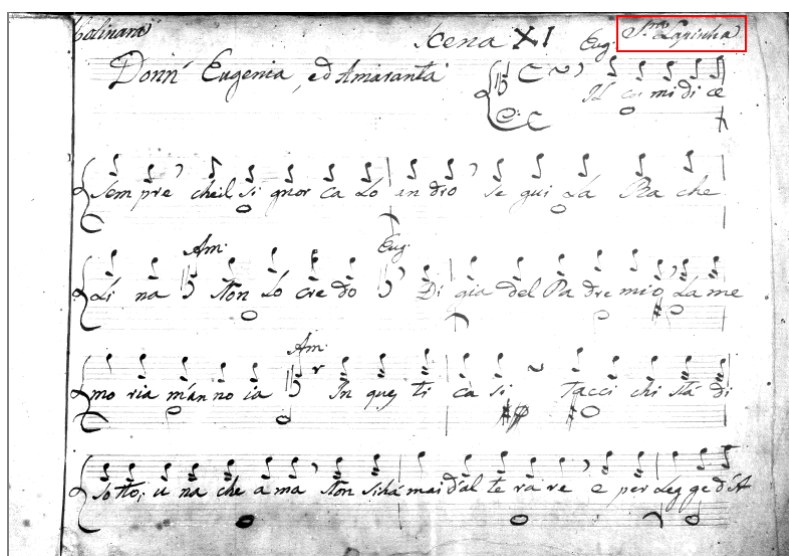 Molinara Scena XI Eug: Sra. Lapinha
Donn' Eugenia, ed Amaranta
Il cor mi dice
sempre che il signor Caloandro segui la Rache
Am: Eug:
lina Non lo credo Di gia del Padre mio la me
Am:
moria m'annoia In questi casi tacci chi sta di
sotto; una che ama Non si há mai d'alterare e per legge d'A